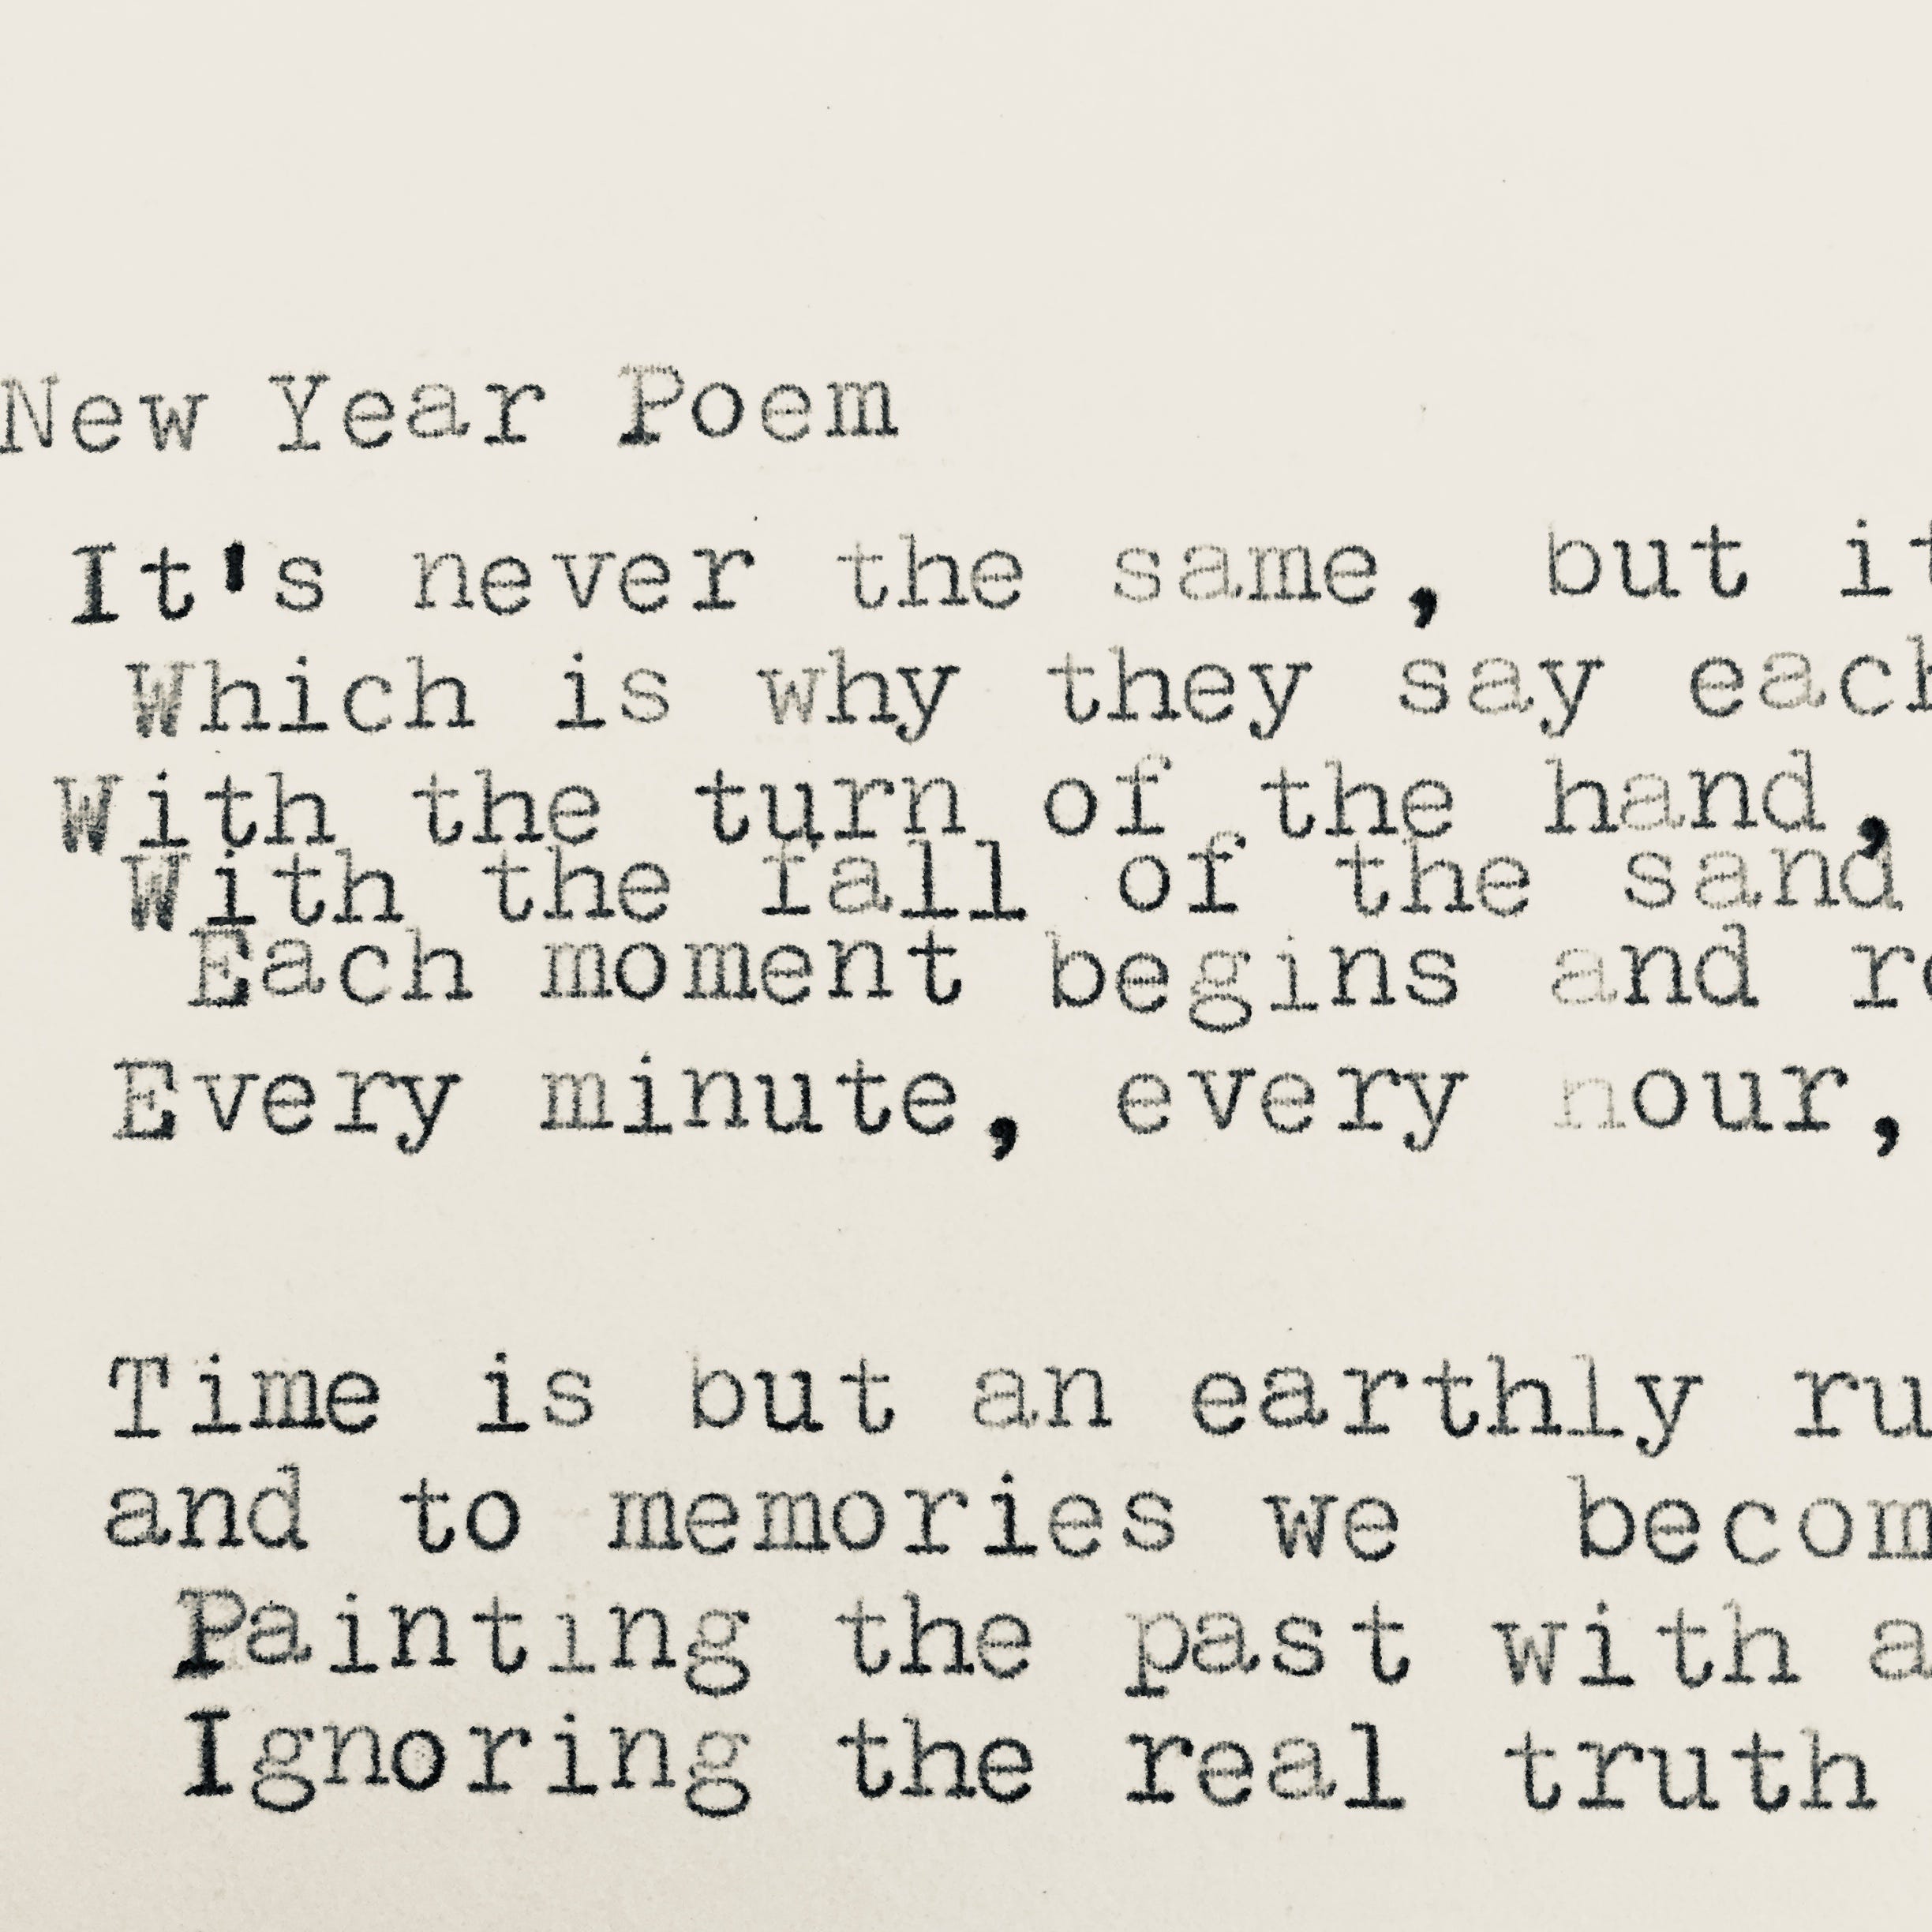 New Year Poem
It's never the same, but it
Which is why they say each
With the turn of the hand,
With the fall of the sand
Each moment begins and
Every minute, every hour,
Time is but an earthly
and to memories we becom
Painting the past with a
Ignoring the real truth